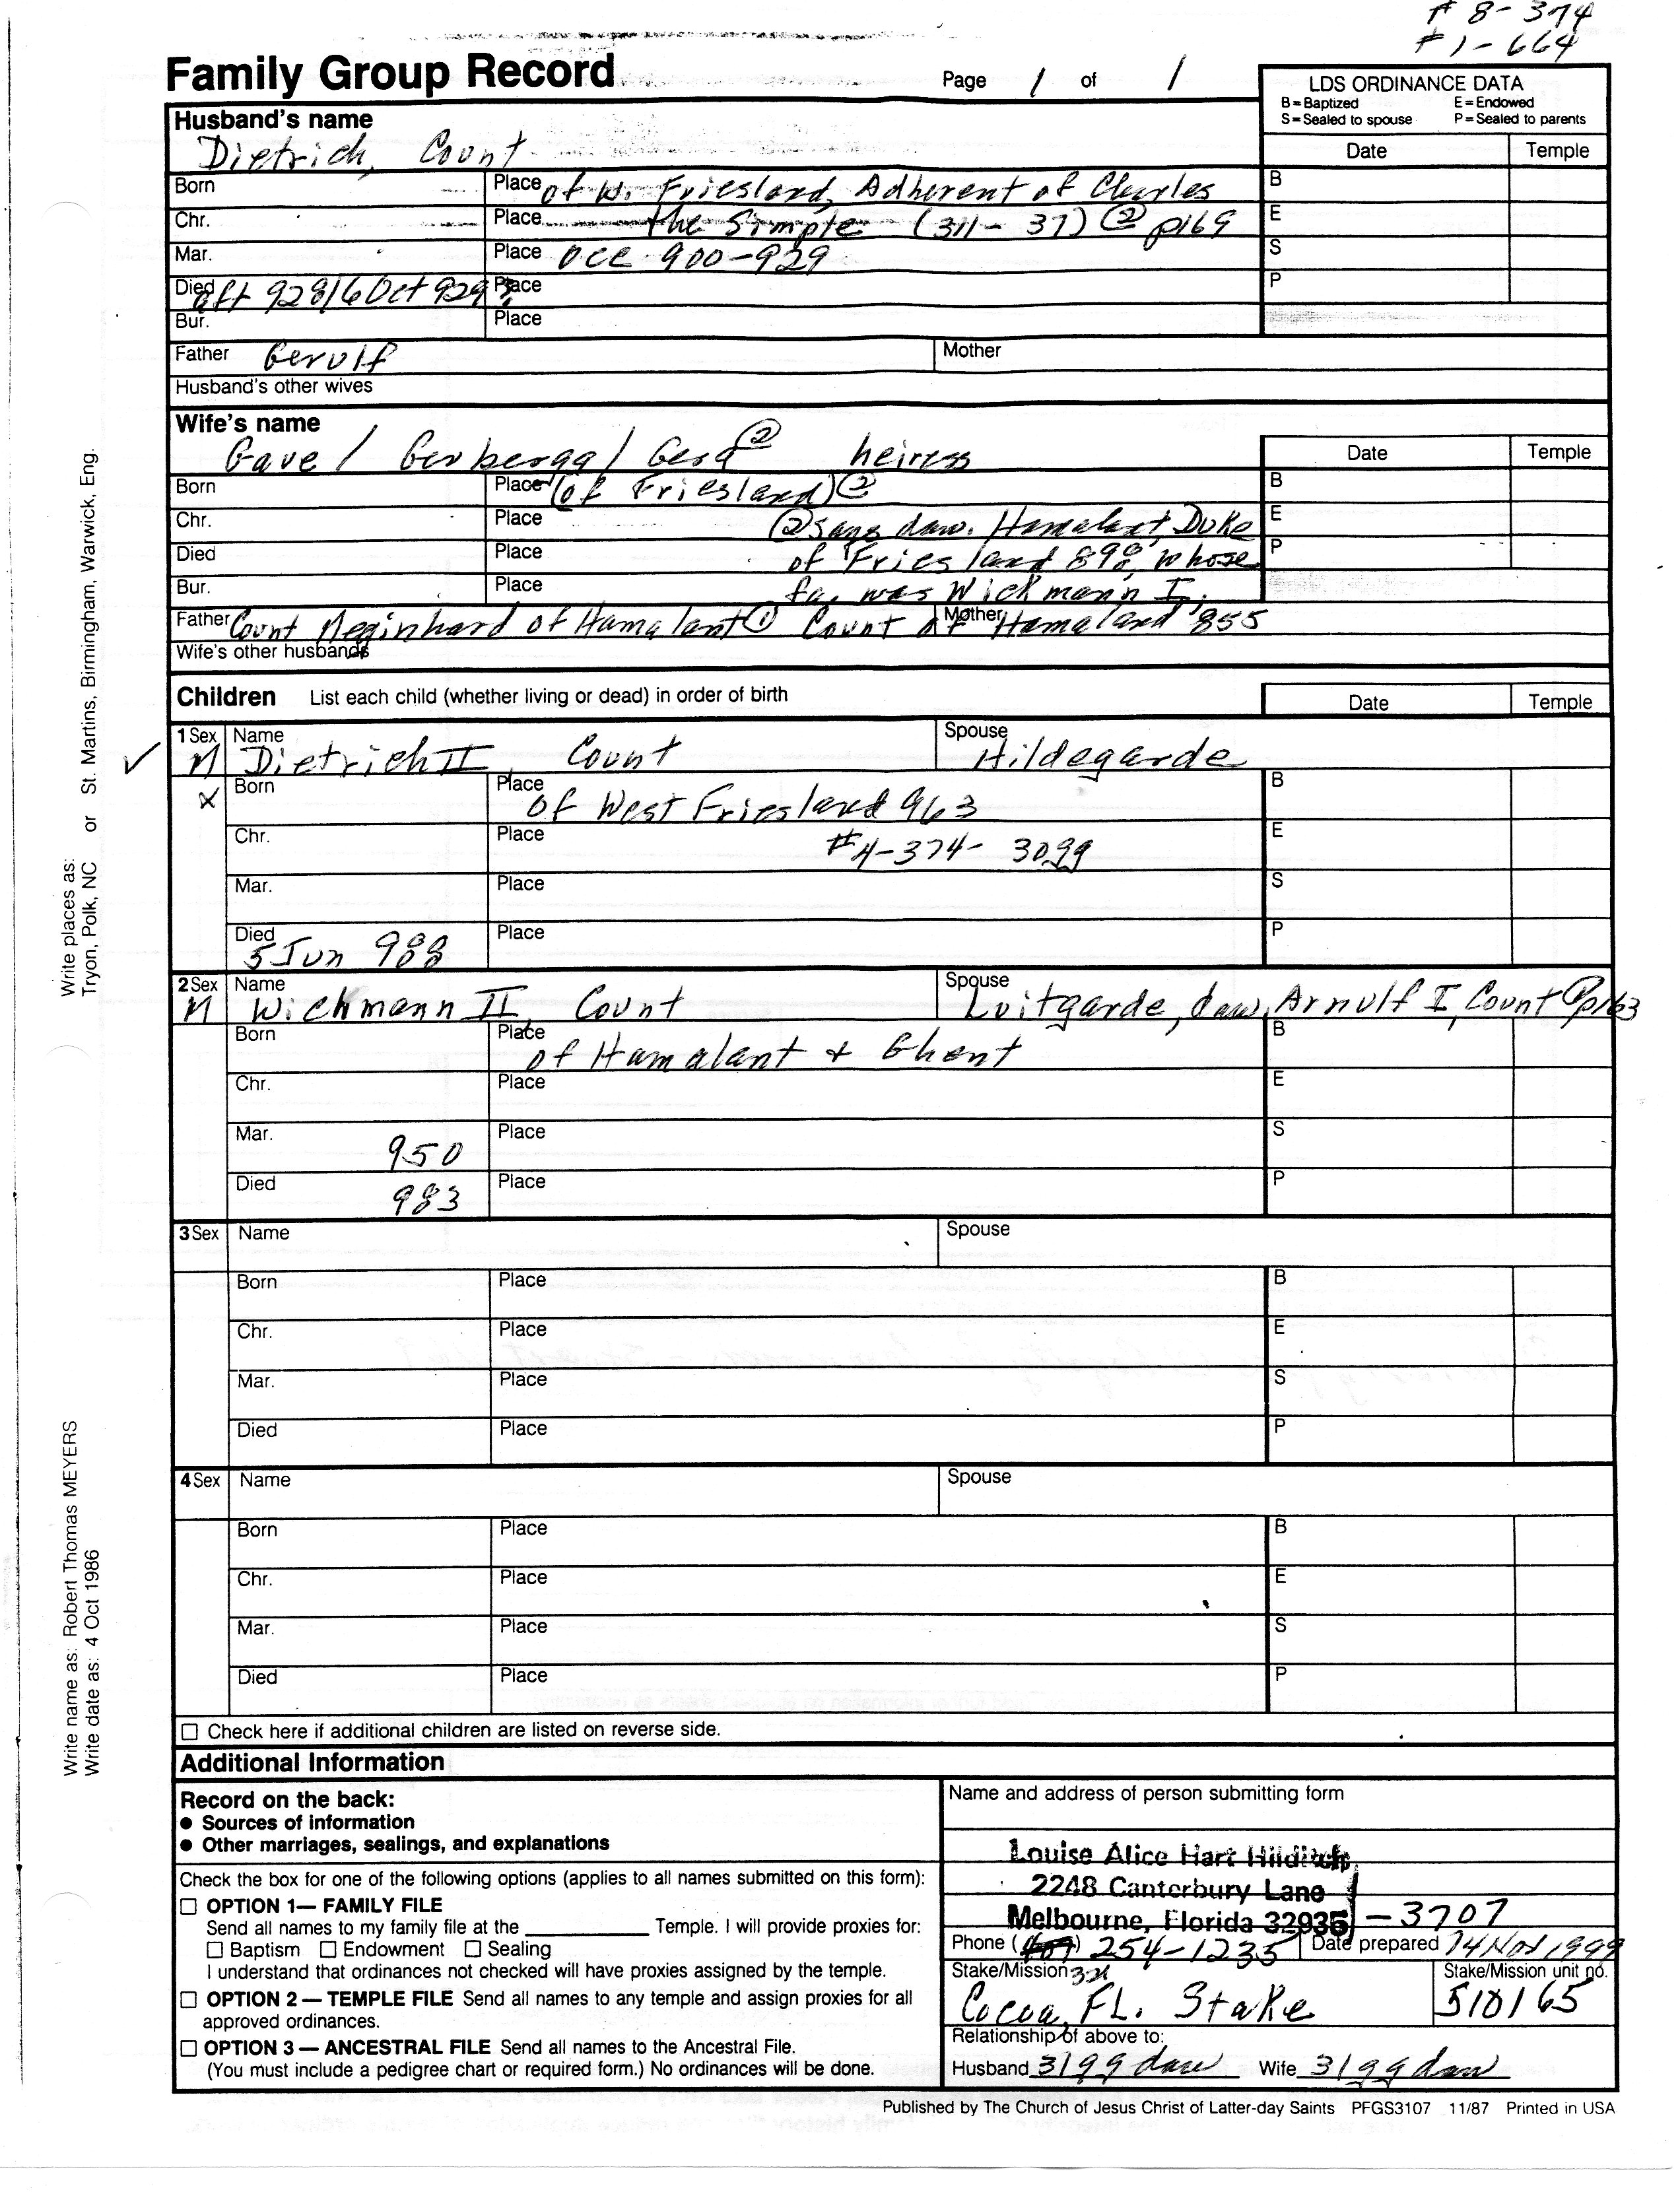 # 8-374
# 1-664
Family Group Record
Page 1 of 1
LDS ORDINANCE DATA
B = Baptized E = Endowed
S = Sealed to spouse P = Sealed to parents
Husband's name
Dietrich, Count
Date Temple
Born Place of W. Friesland, Adherent of Charles B
Chr. Place the Simple (311-37) ② p169 E
Mar. Place occ 900-929 S
Died aft 928/6 Oct 929? Place P
Bur. Place
Father Gerulf Mother
Husband's other wives
Wife's name
Gave / Gerbergg / Gerd ② heiress
Date Temple
Born Place (of Friesland) ② B
Chr. Place ② says daw. Hamalant, Duke E
Died Place of Friesland 898, whose P
Bur. Place fa. was Wickmann I,
Father Count Meginhard of Hamalant ① Mother Count of Hamaland 855
Wife's other husbands
Children List each child (whether living or dead) in order of birth Date Temple
1 Sex Name Spouse
✓ M Dietrich II Count Hildegarde
X Born Place of West Friesland 963 B
Chr. Place #4-374- 3099 E
Mar. Place S
Died 5 Jun 988 Place P
2 Sex Name Spouse
M Wichmann II, Count Luitgarde, daw. Arnulf I, Count p163
Born Place of Hamalant + Ghent B
Chr. Place E
Mar. 950 Place S
Died 983 Place P
3 Sex Name Spouse
Born Place B
Chr. Place E
Mar. Place S
Died Place P
4 Sex Name Spouse
Born Place B
Chr. Place E
Mar. Place S
Died Place P
☐ Check here if additional children are listed on reverse side.
Additional Information
Record on the back:
● Sources of information
● Other marriages, sealings, and explanations
Check the box for one of the following options (applies to all names submitted on this form):
☐ OPTION 1— FAMILY FILE
Send all names to my family file at the ____________ Temple. I will provide proxies for:
☐ Baptism ☐ Endowment ☐ Sealing
I understand that ordinances not checked will have proxies assigned by the temple.
☐ OPTION 2 — TEMPLE FILE Send all names to any temple and assign proxies for all
approved ordinances.
☐ OPTION 3 — ANCESTRAL FILE Send all names to the Ancestral File.
(You must include a pedigree chart or required form.) No ordinances will be done.
Name and address of person submitting form
Louise Alice Hart Hilditch
2248 Canterbury Lane
Melbourne, Florida 32935 -3707
Phone ( ) 254-1235 Date prepared 14 Nov 1999
Stake/Mission 321 Stake/Mission unit no.
Cocoa, FL. Stake 510165
Relationship of above to:
Husband 31gg daw Wife 31gg daw
Published by The Church of Jesus Christ of Latter-day Saints PFGS3107 11/87 Printed in USA
Write places as:
Tryon, Polk, NC or St. Martins, Birmingham, Warwick, Eng.
Write name as: Robert Thomas MEYERS
Write date as: 4 Oct 1986